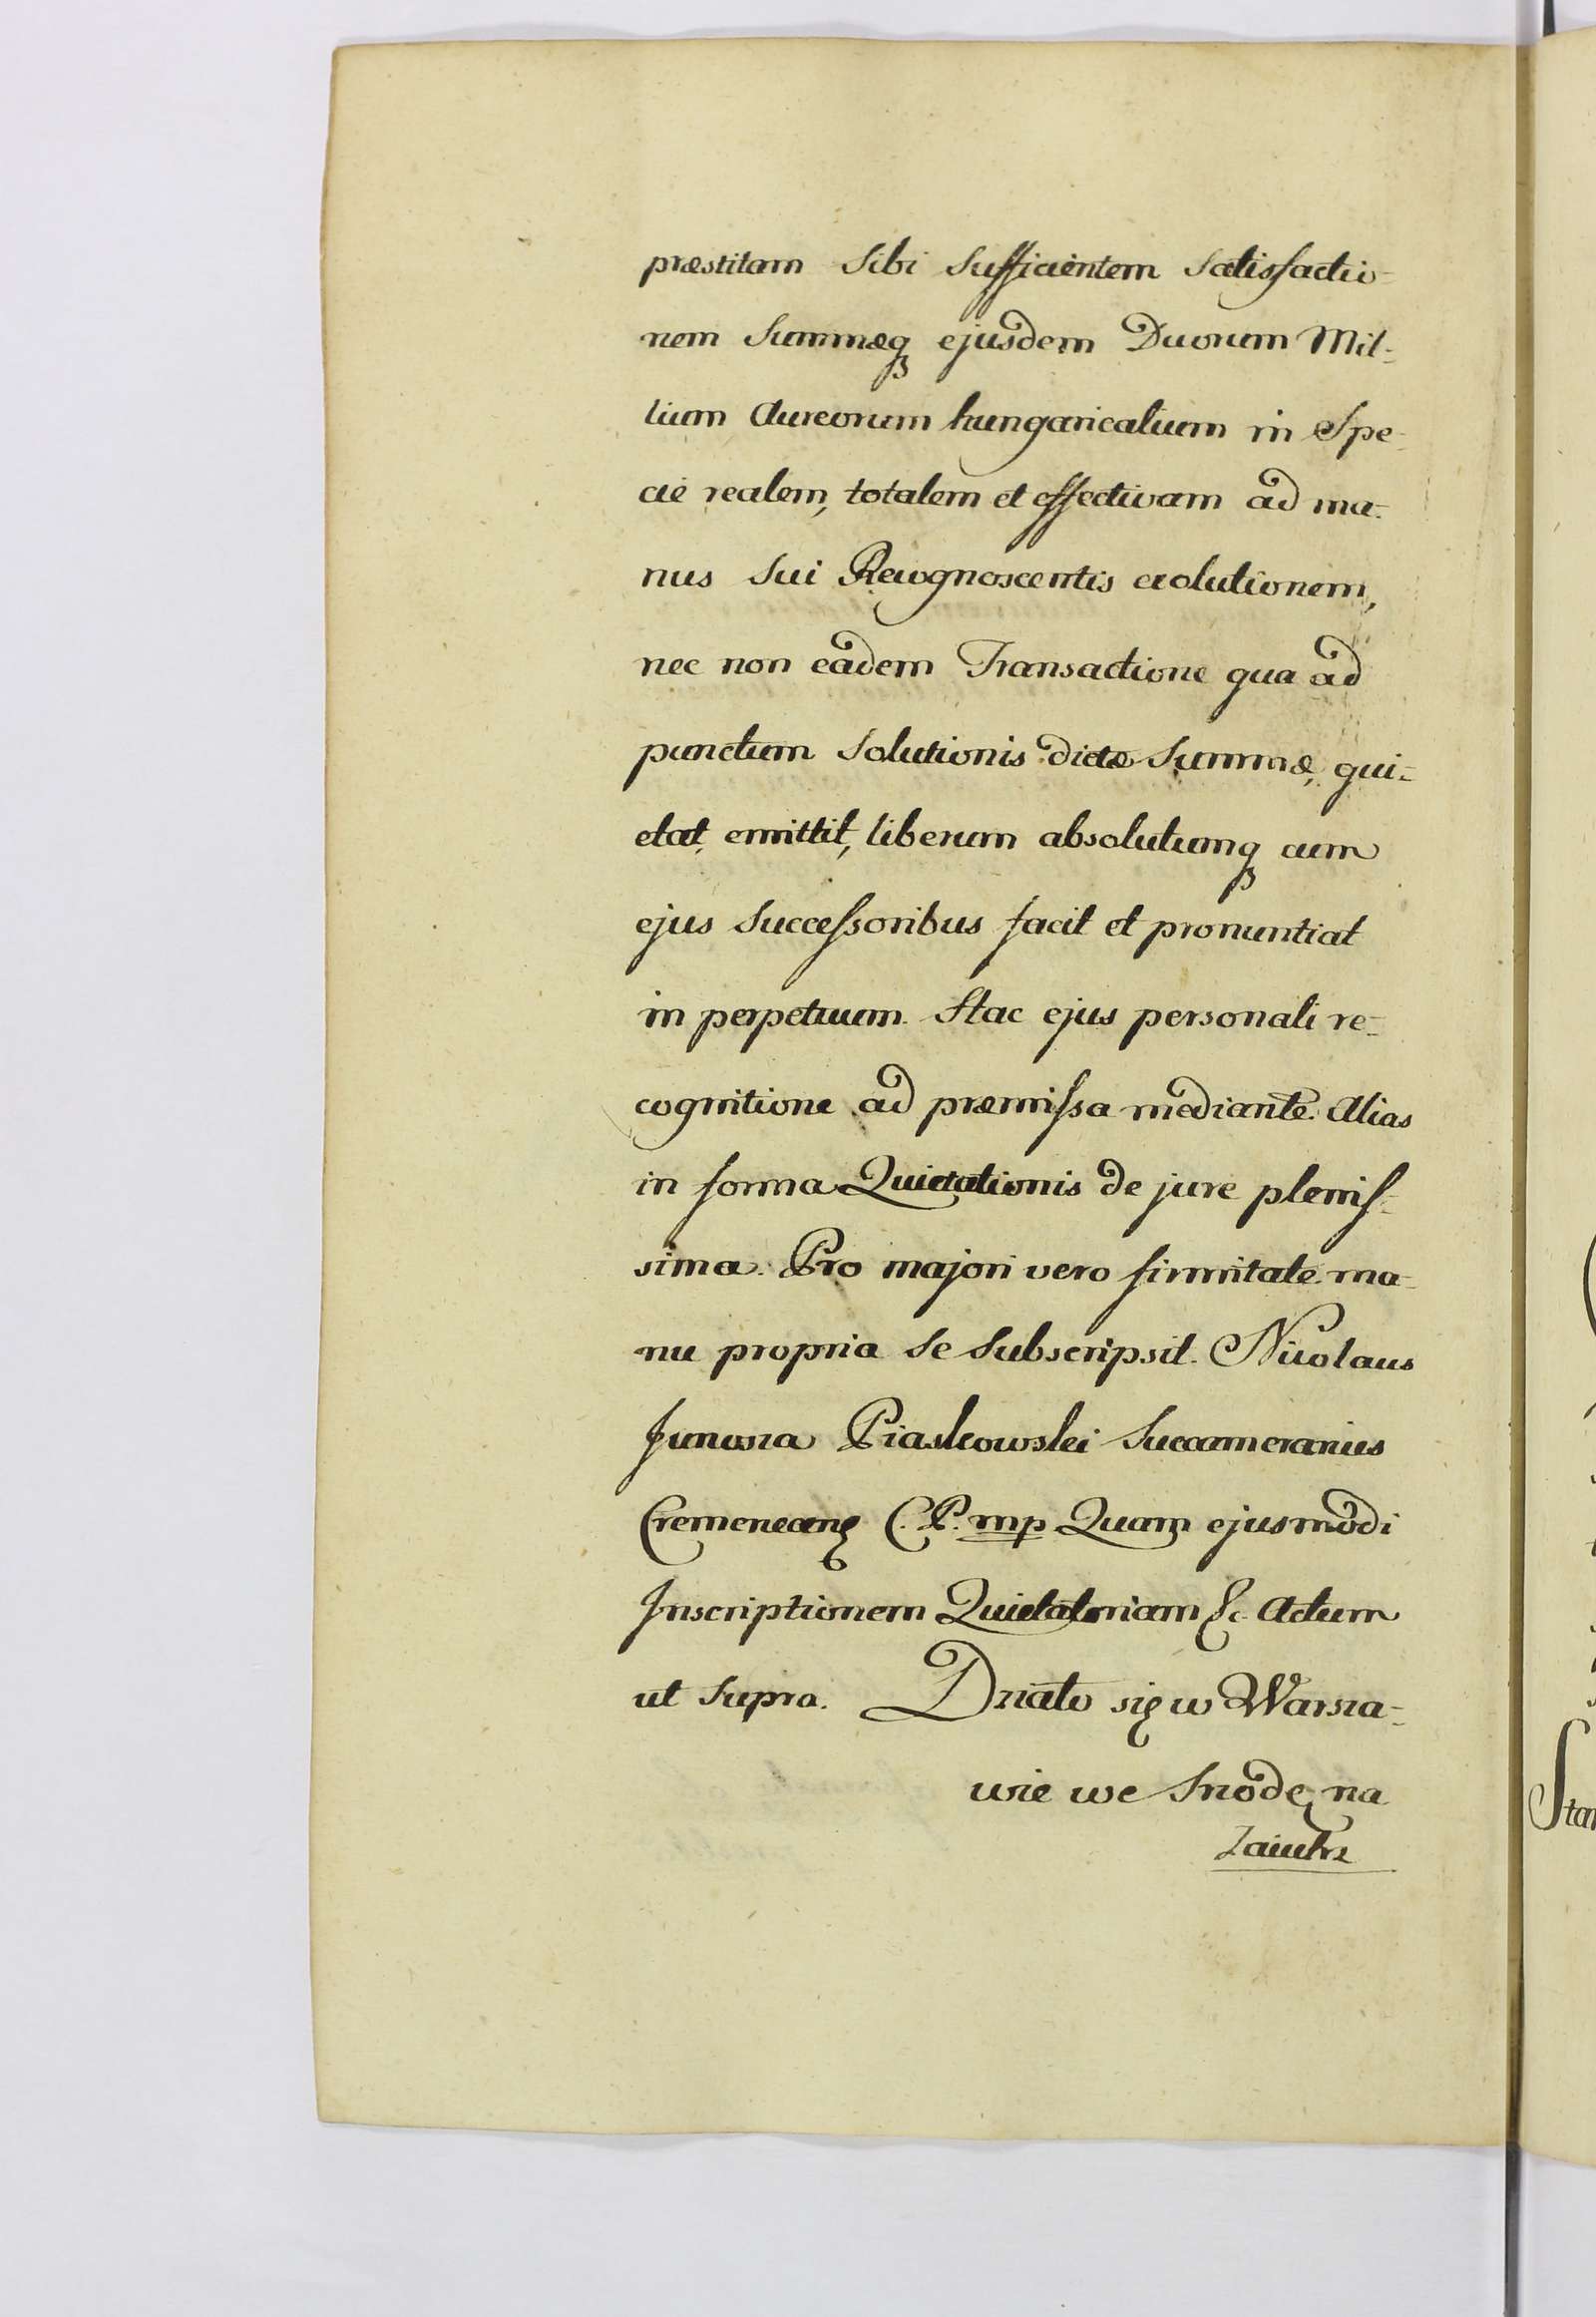 præstitam Sibi Sufficientem Satisfactio-
nem Summæq ejusdem Duorum Mil-
lium Aureorum hungaricalium in Spe-
cie realem, totalem et effectivam ad ma-
nus Sui Recognoscentis exolutionem,
nec non eâdem Transactione qua ad
punctum Solutionis dictæ Summæ, qui-
etat, emittit, liberum absolutumq cum
ejus Successoribus facit et pronuntiat
in perpetuum. Hac ejus personali re-
cognitione ad præmissa mediante. Alias
in forma Quietationis de jure plenis-
sima. Pro majori vero firmitate ma-
nu propria Se Subscripsit. Nicolaus
Junosza Piaskowski Succamerarius
Cremenecens C. P. mp Quam ejusmodi
Inscriptionem Quietatoriam &c. Actum
ut Supra. Działo się w Warsza-
wie we Srzodę na